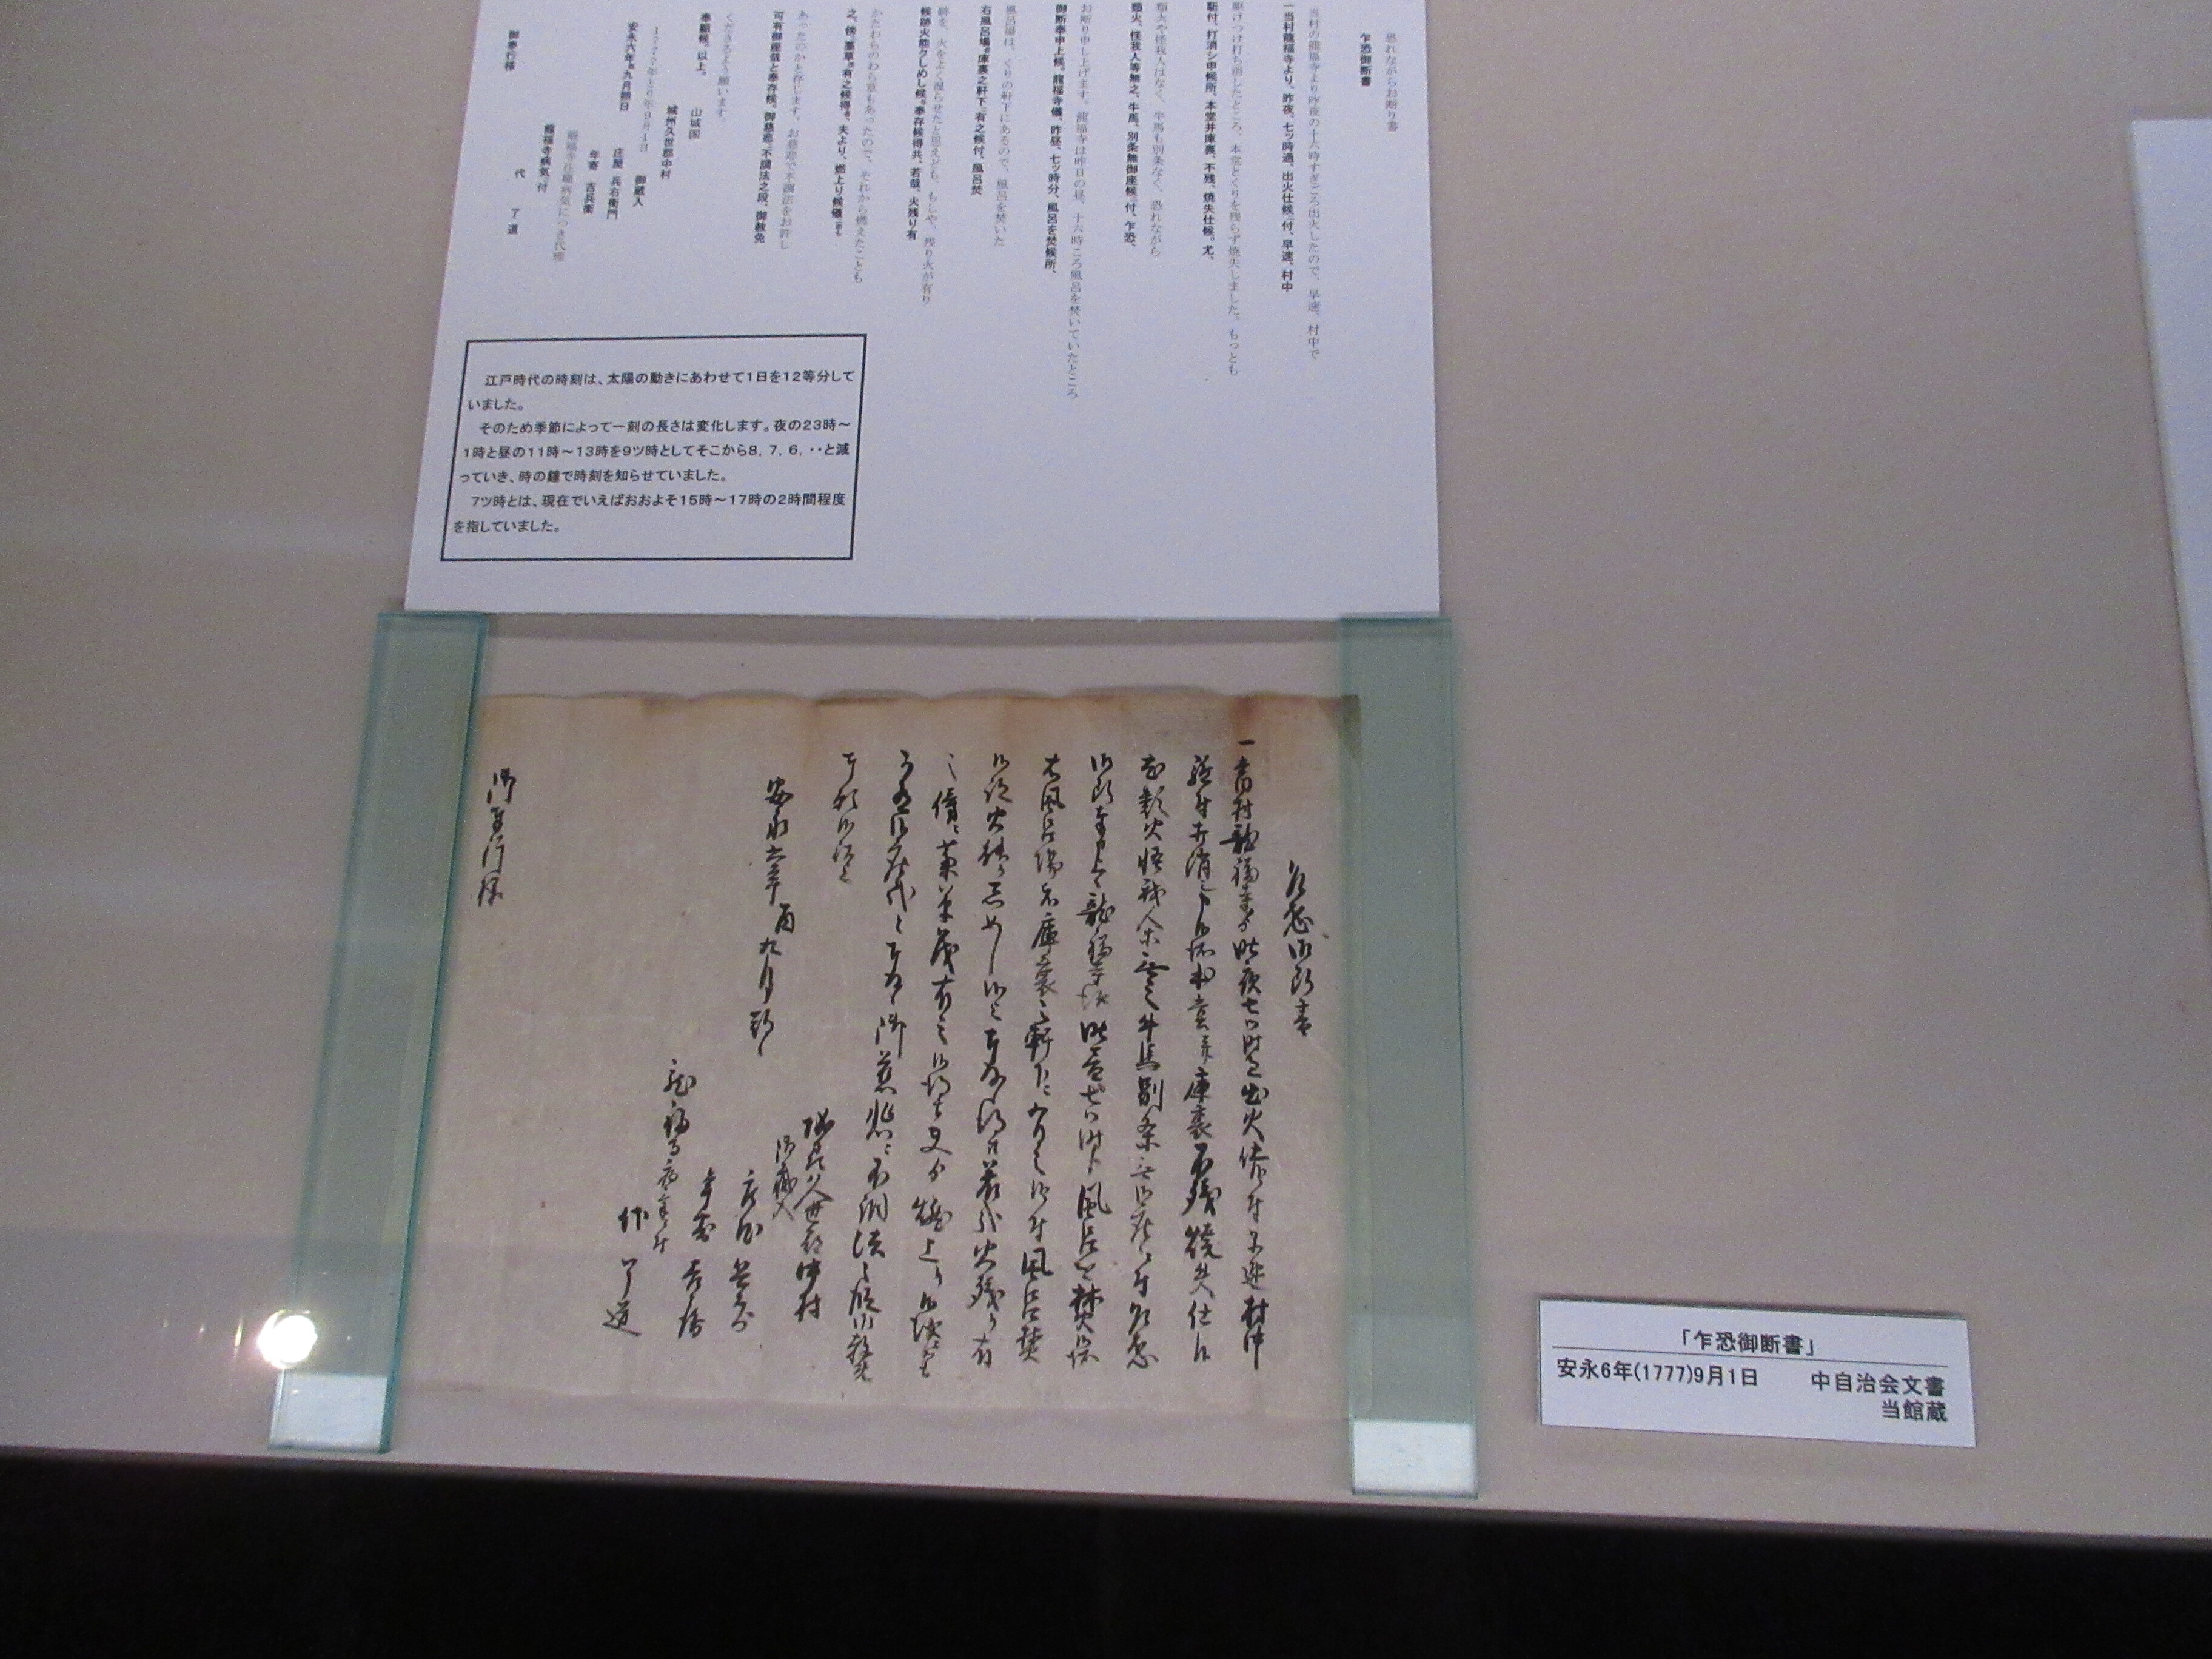 恐れながらお断り書
乍恐御断書
当村の龍福寺より昨夜の十六時すぎごろ出火したので、早速、村中で
一当村龍福寺より、昨夜、七ツ時過、出火仕候ニ付、早速、村中
駆けつけ打ち消したところ、本堂とくりを残らず焼失しました。もっとも
駈付、打消シ申候所、本堂并庫裏、不残、焼失仕候。尤、
類火や怪我人はなく、牛馬も別条なく、恐れながら
類火、怪我人等無之、牛馬、別条無御座候ニ付、乍恐、
お断り申し上げます。龍福寺は昨日の昼、十六時ころ風呂を焚いていたところ
御断奉申上候。龍福寺儀、昨昼、七ッ時分、風呂を焚候所、
風呂場は、くりの軒下にあるので、風呂を焚いた
右風呂場ハ庫裏之軒下ニ有之候付、風呂焚
跡を、火をよく湿らせたと思えども、もしや、残り火が有り
候跡火能クしめし候と奉存候得共、若哉、火残り有
かたわらのわら草もあったので、それから燃えたことも
之、傍ニ藁草茂有之候得は、夫より、燃上り候儀ニ而も
あったのかと存じます。お慈悲で不調法をお許し
可有御座哉と奉存候。御慈悲ニ不調法之段、御赦免
くださるよう願います。
奉願候。以上。
山城国
城州久世郡中村
御蔵入
1777年とり年9月1日
安永六年酉九月朔日
庄屋 兵右衛門
年寄 吉兵衛
龍福寺住職病気につき代理
龍福寺病気ニ付
代 了道
御奉行様
江戸時代の時刻は、太陽の動きにあわせて1日を12等分して
いました。
そのため季節によって一刻の長さは変化します。夜の23時～
1時と昼の11時～13時を9ツ時としてそこから8，7，6，・・と減
っていき、時の鐘で時刻を知らせていました。
7ツ時とは、現在でいえばおおよそ15時～17時の2時間程度
を指していました。
乍恐御断書
一当村龍福寺より昨夜七ツ時過出火仕候付早速村中
駈付打消シ申候所本堂并庫裏不残焼失仕候
尤類火怪我人等無之牛馬別条無御座候ニ付乍恐
御断奉申上候龍福寺儀昨昼七ツ時分風呂を焚候所
右風呂場ハ庫裏之軒下ニ有之候付風呂焚
候跡火能クしめし候と奉存候得共若哉火残り有
之傍ニ藁草茂有之候得は夫より燃上り候儀ニ而も
可有御座哉と奉存候御慈悲ニ不調法之段御赦免
奉願候以上
城州久世郡中村
御蔵入
安永六年酉九月朔日
庄屋 兵右衛門
年寄 吉兵衛
龍福寺病気ニ付
代 了道
御奉行様
「乍恐御断書」
安永6年(1777)9月1日 中自治会文書
当館蔵